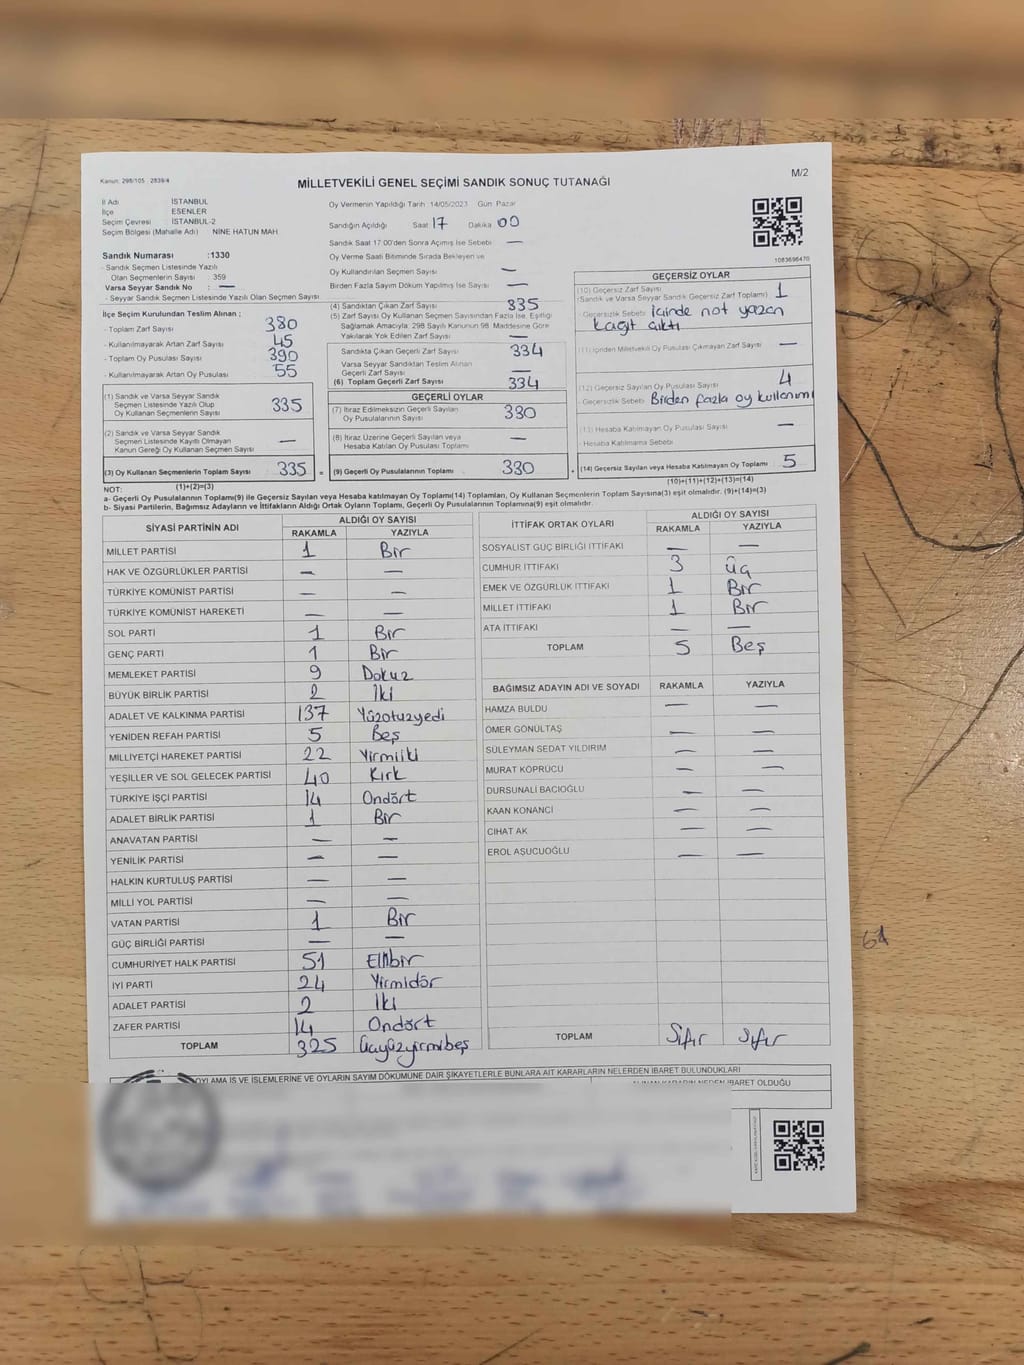 Kanun: 298/105 - 2839/4
MİLLETVEKİLİ GENEL SEÇİMİ SANDIK SONUÇ TUTANAĞI
M/2
İl Adı İSTANBUL
İlçe ESENLER
Seçim Çevresi İSTANBUL-2
Seçim Bölgesi (Mahalle Adı) NİNE HATUN MAH.
Sandık Numarası :1330
- Sandık Seçmen Listesinde Yazılı
Olan Seçmenlerin Sayısı : 359
Varsa Seyyar Sandık No : —
- Seyyar Sandık Seçmen Listesinde Yazılı Olan Seçmen Sayısı
İlçe Seçim Kurulundan Teslim Alınan ;
- Toplam Zarf Sayısı 380
- Kullanılmayarak Artan Zarf Sayısı 45
- Toplam Oy Pusulası Sayısı 390
- Kullanılmayarak Artan Oy Pusulası 55
(1) Sandık ve Varsa Seyyar Sandık
Seçmen Listesinde Yazılı Olup
Oy Kullanan Seçmenlerin Sayısı 335
(2) Sandık ve Varsa Seyyar Sandık
Seçmen Listesinde Kayıtlı Olmayan
Kanun Gereği Oy Kullanan Seçmenlerin Sayısı —
(3) Oy Kullanan Seçmenlerin Toplam Sayısı 335 =
(1)+(2)=(3)
Oy Vermenin Yapıldığı Tarih 14/05/2023 Gün Pazar
Sandığın Açıldığı Saat 17 Dakika 00
Sandık Saat 17.00'den Sonra Açılmış İse Sebebi —
Oy Verme Saati Bitiminde Sırada Bekleyen ve
Oy Kullandırılan Seçmen Sayısı —
Birden Fazla Sayım Döküm Yapılmış İse Sayısı —
(4) Sandıktan Çıkan Zarf Sayısı 335
(5) Zarf Sayısı Oy Kullanan Seçmen Sayısından Fazla İse, Eşitliği
Sağlamak Amacıyla; 298 Sayılı Kanunun 98. Maddesine Göre
Yakılarak Yok Edilen Zarf Sayısı —
Sandıkta Çıkan Geçerli Zarf Sayısı 334
Varsa Seyyar Sandıktan Teslim Alınan
Geçerli Zarf Sayısı —
(6) Toplam Geçerli Zarf Sayısı 334
GEÇERLİ OYLAR
(7) İtiraz Edilmeksizin Geçerli Sayılan
Oy Pusulalarının Sayısı 330
(8) İtiraz Üzerine Geçerli Sayılan veya
Hesaba Katılan Oy Pusulası Toplamı —
(9) Geçerli Oy Pusulalarının Toplamı 330 +
1083698470
GEÇERSİZ OYLAR
(10) Geçersiz Zarf Sayısı
(Sandık ve Varsa Seyyar Sandık Geçersiz Zarf Toplamı) 1
- Geçersizlik Sebebi İçinde not yazan
kağıt çıktı
(11) İçinden Milletvekili Oy Pusulası Çıkmayan Zarf Sayısı —
(12) Geçersiz Sayılan Oy Pusulası Sayısı 4
- Geçersizlik Sebebi Birden fazla oy kullanımı
(13) Hesaba Katılmayan Oy Pusulası Sayısı —
- Hesaba Katılmama Sebebi
(14) Geçersiz Sayılan veya Hesaba Katılmayan Oy Toplamı 5
(10)+(11)+(12)+(13)=(14)
NOT:
a- Geçerli Oy Pusulalarının Toplamı(9) ile Geçersiz Sayılan veya Hesaba katılmayan Oy Toplamı(14) Toplamları, Oy Kullanan Seçmenlerin Toplam Sayısına(3) eşit olmalıdır. (9)+(14)=(3)
b- Siyasi Partilerin, Bağımsız Adayların ve İttifakların Aldığı Ortak Oyların Toplamı, Geçerli Oy Pusulalarının Toplamına(9) eşit olmalıdır.
SİYASİ PARTİNİN ADI ALDIĞI OY SAYISI
RAKAMLA YAZIYLA
MİLLET PARTİSİ 1 Bir
HAK VE ÖZGÜRLÜKLER PARTİSİ — —
TÜRKİYE KOMÜNİST PARTİSİ — —
TÜRKİYE KOMÜNİST HAREKETİ — —
SOL PARTİ 1 Bir
GENÇ PARTİ 1 Bir
MEMLEKET PARTİSİ 9 Dokuz
BÜYÜK BİRLİK PARTİSİ 2 İki
ADALET VE KALKINMA PARTİSİ 137 Yüzotuzyedi
YENİDEN REFAH PARTİSİ 5 Beş
MİLLİYETÇİ HAREKET PARTİSİ 22 Yirmiiki
YEŞİLLER VE SOL GELECEK PARTİSİ 40 Kırk
TÜRKİYE İŞÇİ PARTİSİ 14 Ondört
ADALET BİRLİK PARTİSİ 1 Bir
ANAVATAN PARTİSİ — —
YENİLİK PARTİSİ — —
HALKIN KURTULUŞ PARTİSİ — —
MİLLİ YOL PARTİSİ — —
VATAN PARTİSİ 1 Bir
GÜÇ BİRLİĞİ PARTİSİ — —
CUMHURİYET HALK PARTİSİ 51 Ellibir
İYİ PARTİ 24 Yirmidör
ADALET PARTİSİ 2 İki
ZAFER PARTİSİ 14 Ondört
TOPLAM 325 Üçyüzyirmibeş
İTTİFAK ORTAK OYLARI ALDIĞI OY SAYISI
RAKAMLA YAZIYLA
SOSYALİST GÜÇ BİRLİĞİ İTTİFAKI — —
CUMHUR İTTİFAKI 3 Üç
EMEK VE ÖZGÜRLÜK İTTİFAKI 1 Bir
MİLLET İTTİFAKI 1 Bir
ATA İTTİFAKI — —
TOPLAM 5 Beş
BAĞIMSIZ ADAYIN ADI VE SOYADI RAKAMLA YAZIYLA
HAMZA BULDU — —
ÖMER GÖNÜLTAŞ — —
SÜLEYMAN SEDAT YILDIRIM — —
MURAT KÖPRÜCÜ — —
DURSUNALİ BACIOĞLU — —
KAAN KONANCİ — —
CİHAT AK — —
EROL AŞUCUOĞLU — —
TOPLAM Sıfır Sıfır
OYLAMA İŞ VE İŞLEMLERİNE VE OYLARIN SAYIM DÖKÜMÜNE DAİR ŞİKAYETLERLE BUNLARA AİT KARARLARIN NELERDEN İBARET BULUNDUKLARI
ALINAN KARARIN NEDEN İBARET OLDUĞU